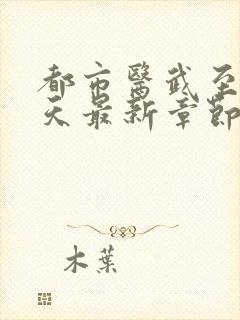 都市醫武至
天最新章節
木葉